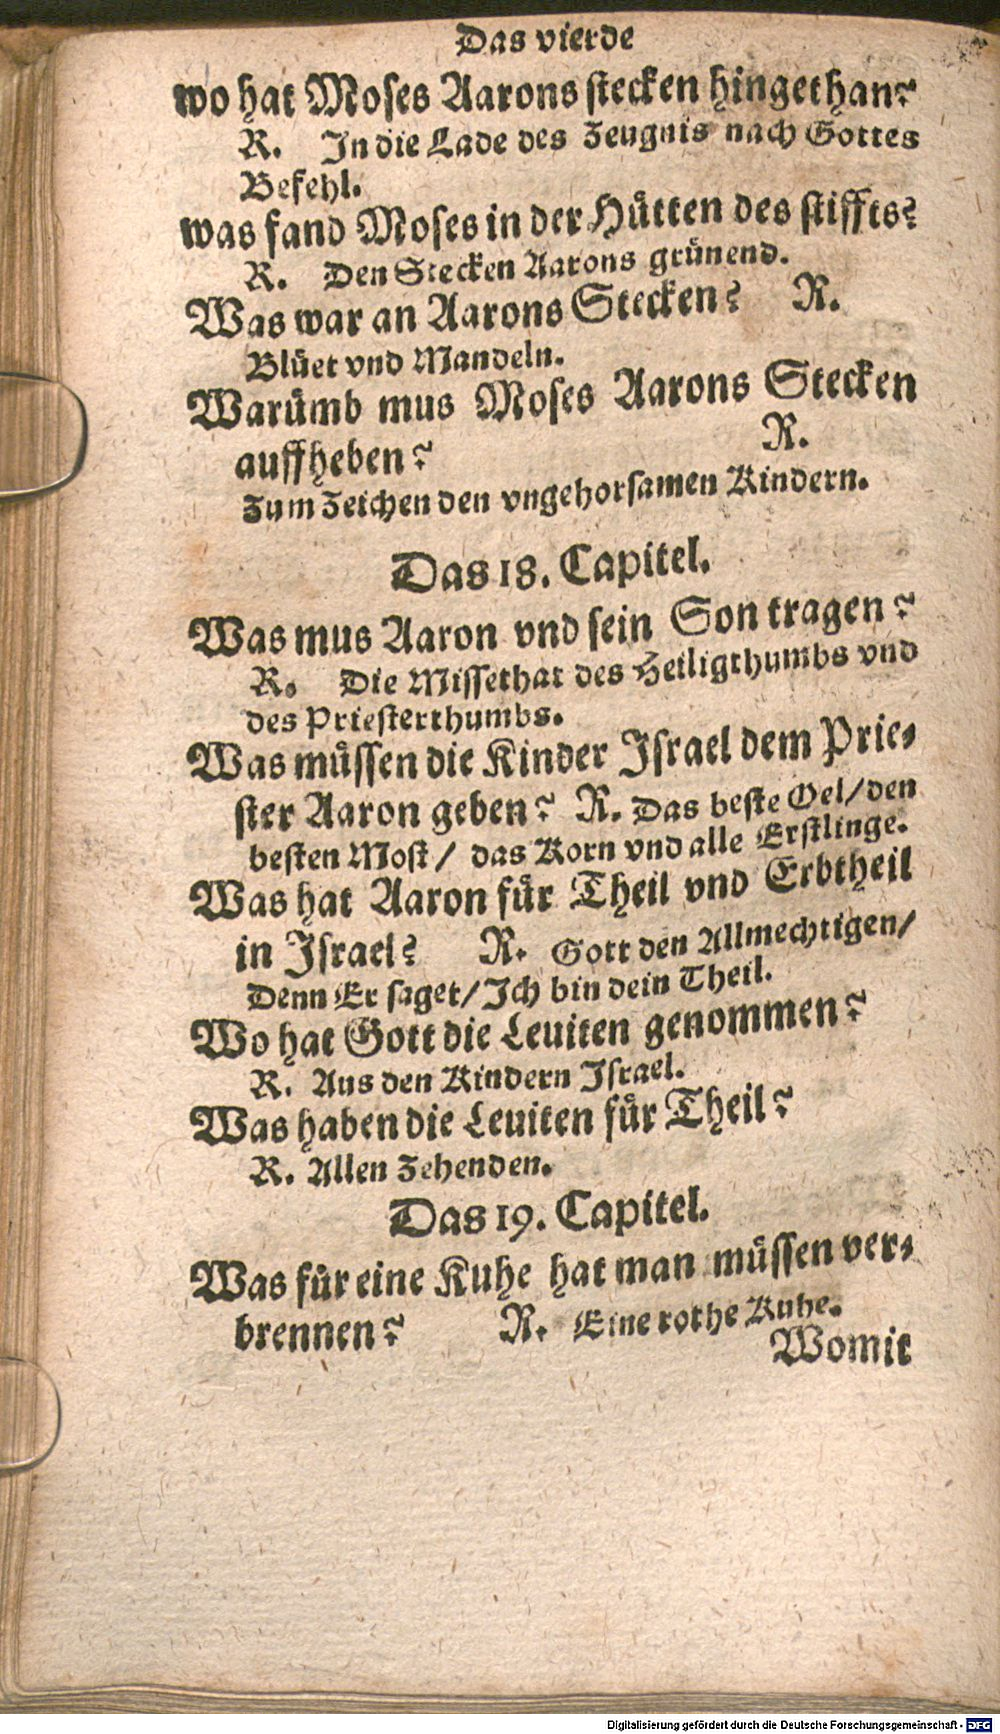 Das vierde
wo hat Moſes Aarons ſtecken hingethan?
R. In die Lade des Zeugnis nach Gottes
Befehl.
was fand Moſes in der Huͤtten des ſtiffts?
R. Den Stecken Aarons gruͤnend.
Was war an Aarons Stecken? R.
Bluͤet vnd Mandeln.
Waruͤmb mus Moſes Aarons Stecken
auffheben? R.
Zum Zeichen den vngehorſamen Kindern.
Das 18. Capitel.
Was mus Aaron vnd ſein Son tragen?
R. Die Miſſethat des Heiligthumbs vnd
des Prieſterthumbs.
Was muͤſſen die Kinder Iſrael dem Prie⸗
ſter Aaron geben? R. Das beſte Oel/ den
beſten Moſt/ das Korn vnd alle Erſtlinge.
Was hat Aaron fuͤr Theil vnd Erbtheil
in Iſrael? R. Gott den Allmechtigen/
Denn Er ſaget/ Ich bin dein Theil.
Wo hat Gott die Leuiten genommen?
R. Aus den Kindern Iſrael.
Was haben die Leuiten fuͤr Theil?
R. Allen Zehenden.
Das 19. Capitel.
Was fuͤr eine Kuhe hat man muͤſſen ver⸗
brennen? R. Eine rothe Kuhe.
Womit
Digitalisierung gefördert durch die Deutsche Forschungsgemeinschaft - DFG